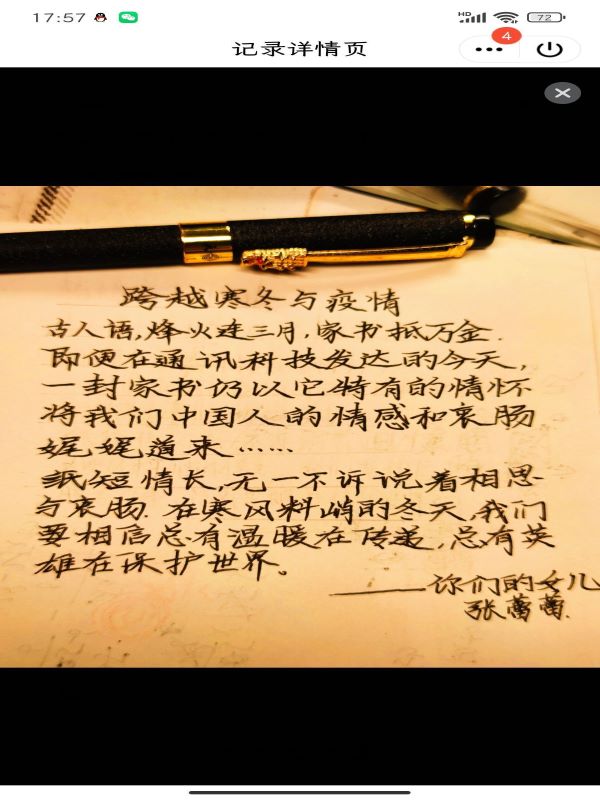 17:57
HD
72
记录详情页
4
跨越寒冬与疫情
古人语,烽火连三月,家书抵万金.
即便在通讯科技发达的今天,
一封家书仍以它特有的情怀
将我们中国人的情感和衷肠
娓娓道来……
纸短情长,无一不诉说着相思
与衷肠.在寒风料峭的冬天,我们
要相信总有温暖在传递,总有英
雄在保护世界。
——你们的女儿
张蕾蕾.